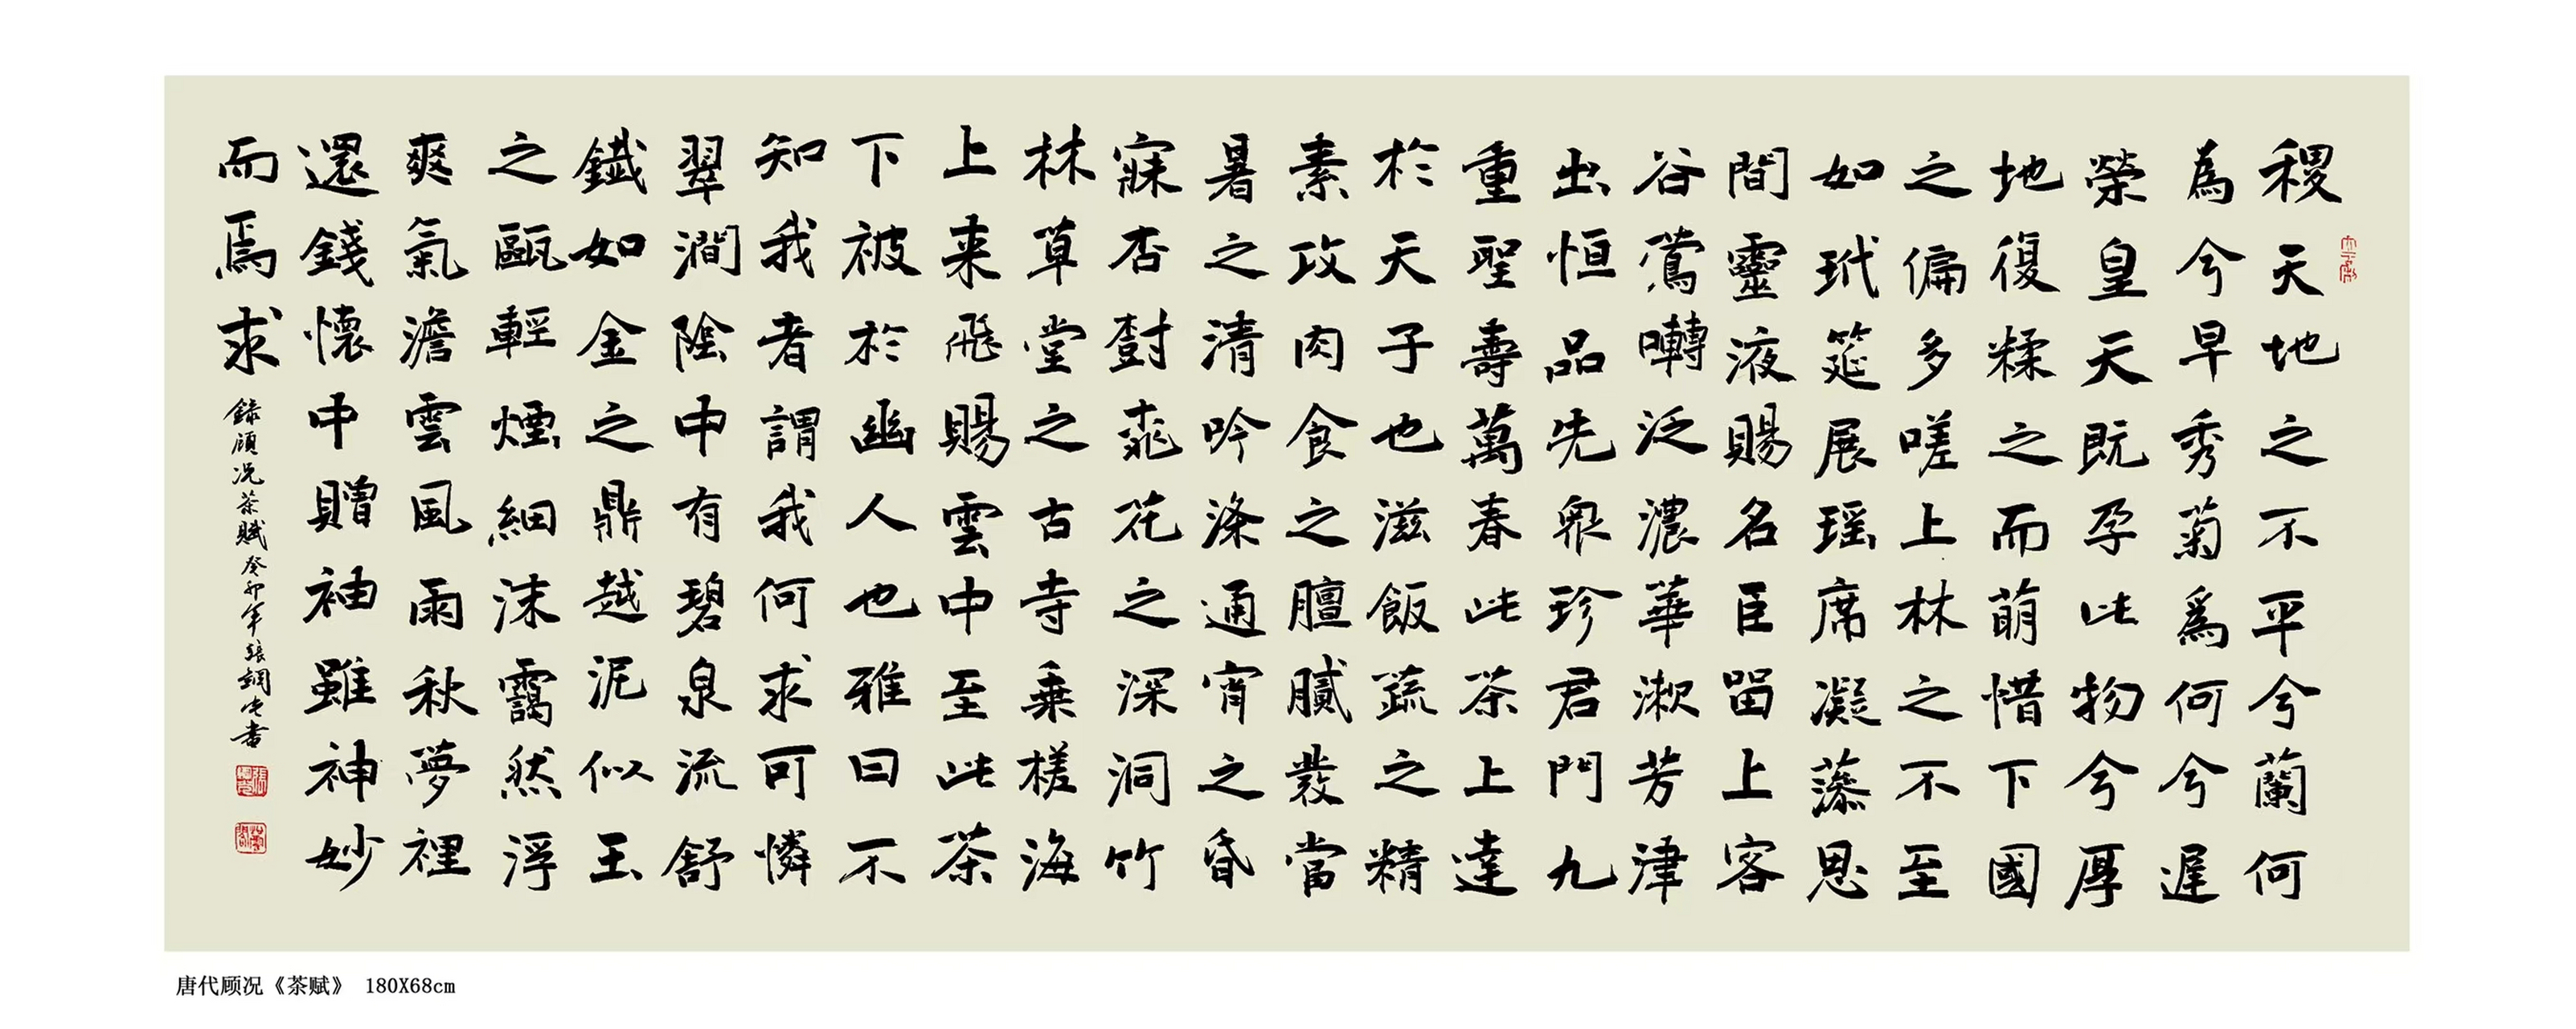 稷天地之不平兮蘭何
為兮早秀菊爲何兮遲
榮皇天既孕此物兮厚
地復糅之而萌惜下國
之偏多嗟上林之不至
如玳筵展瑶席凝藻思
間靈液賜名臣留上客
谷鶯囀泛濃華漱芳津
出恒品先衆珍君門九
重聖壽萬春此茶上達
於天子也滋飯蔬之精
素攻肉食之膻膩發當
暑之清吟滌通宵之昏
寐杏樹桃花之深洞竹
林草堂之古寺乗槎海
上来飛賜雲中至此茶
下被於幽人也雅曰不
知我者謂我何求可憐
翠澗陰中有碧泉流舒
鐵如金之鼎越泥似玉
之甌輕煙細沫靄然浮
爽氣澹雲風雨秋夢裡
還錢懷中贈袖雖神妙
而焉求
録顧况茶賦癸卯年張書
唐代顾况《茶赋》 180X68cm